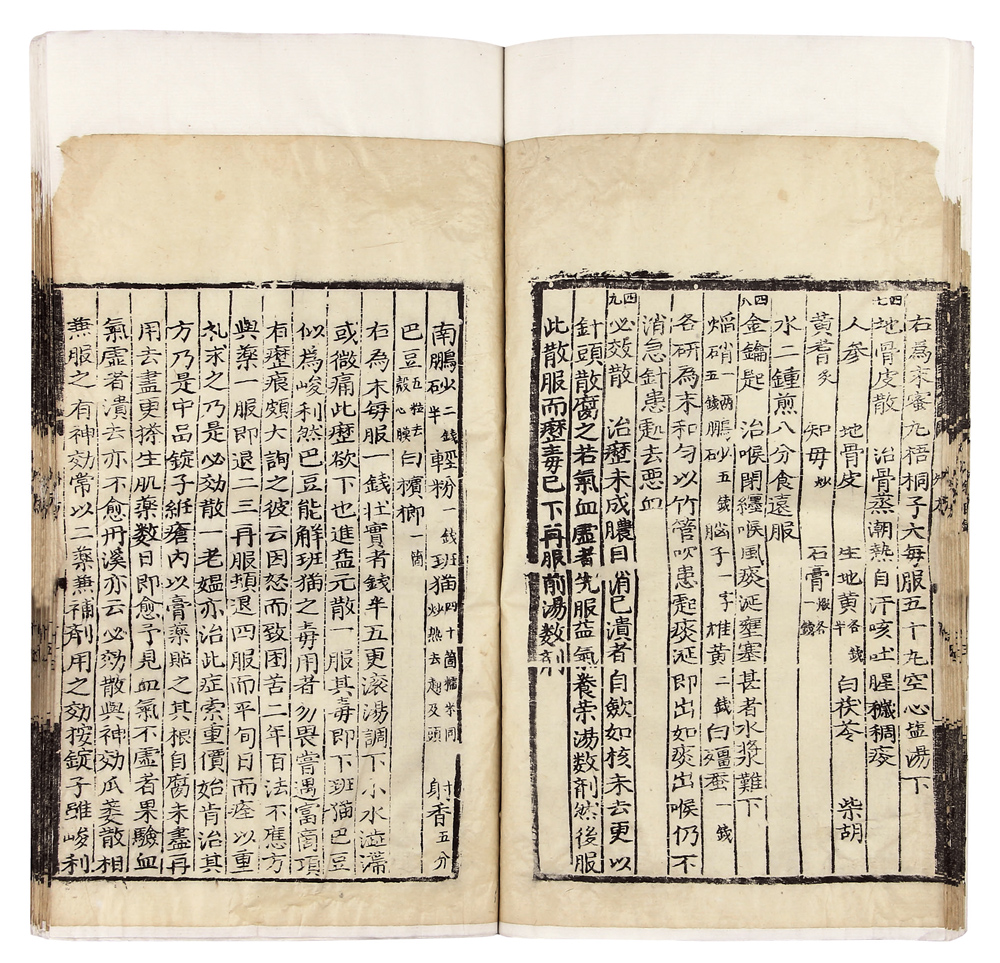 右為末蜜丸梧桐子大每服五十丸空心塩湯下
四七地骨皮散 治骨蒸潮熱自汗咳吐腥穢稠痰
人参 地骨皮 生地黄各半錢 白茯苓 柴胡
黄耆炙 知母炒 石膏煅各一錢
水二鍾煎八分食遠服
四八金鑰匙 治喉閉纏喉風痰涎壅塞甚者水漿難下
焔硝一兩五錢 鵬砂五錢 脳子一字 雄黄二錢 白殭蚕一錢
各研為末和匀以竹管吹患処痰涎即出如痰出喉仍不
消急針患処去惡血
四九必效散 治瘰未成膿自消已潰者自斂如核未去更以
針頭散腐之若氣血虛者先服益氣養荣湯數劑然後服
此散服而瘰毒已下再服前湯数剂
南鵬砂二錢半 輕粉一錢 班猫四十箇糯米同炒熟去翅及頭 射香五分
巴豆五粒去殼心膜 白檳榔一箇
右為末每服一錢壮實者錢半五更滚湯調下小水澁滞
或微痛此瘰欲下也進益元散一服其毒即下班猫巴豆
似為峻利然巴豆能解班猫之毒用者勿畏嘗遇富商項
有瘰痕頗大詢之彼云因怒而致困苦二年百法不應方
與藥一服即退二三再服頻退四服而平旬日而痊以重
礼求之乃是必効散一老媼亦治此症索重價始肯治其
方乃是中品錠子紝瘡内以膏藥貼之其根自腐未盡再
用去盡更搽生肌藥数日即愈予見血氣不虛者果驗血
氣虛者潰去亦不愈丹溪亦云必効散與神効瓜蔞散相
兼服之有神効常以二藥兼補剤用之効按錠子雖峻利